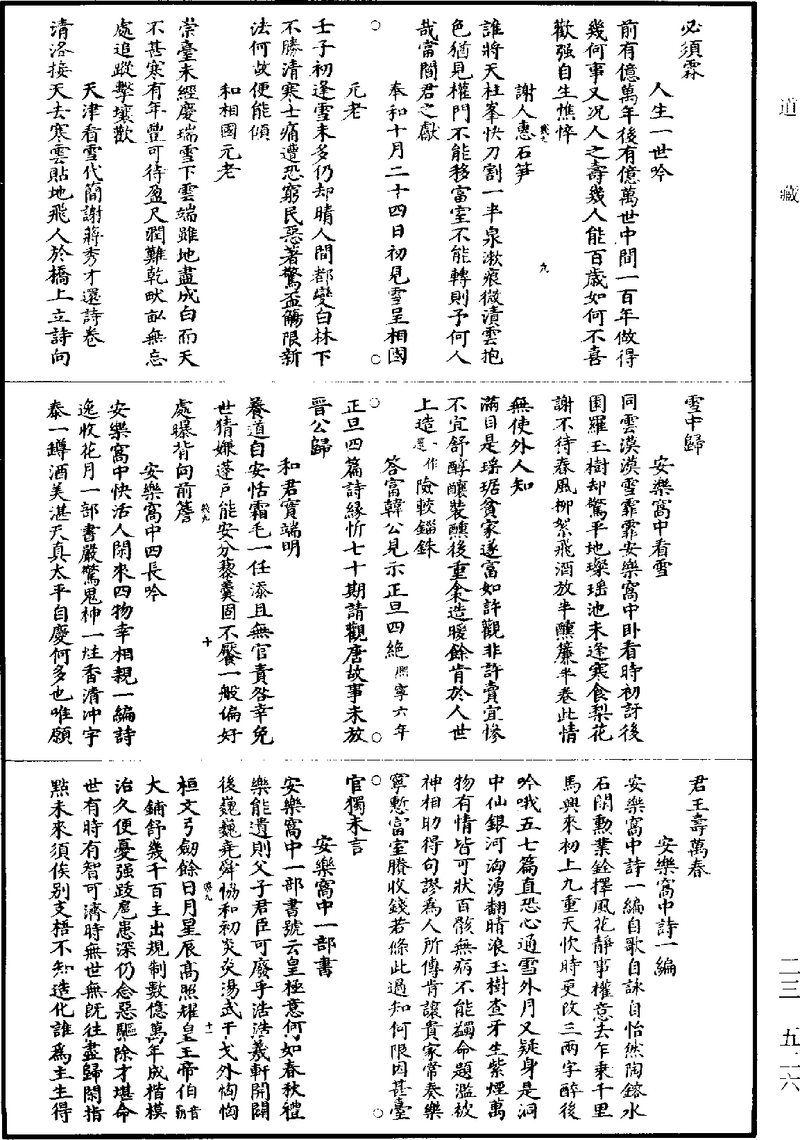 道藏
必須霖
人生一世吟
前有億萬年後有億萬世中間一百年做得
幾何事又況人之壽幾人能百歲如何不喜
歡强自生憔悴
謝人惠石笋
誰將天柱峯快刀割一半泉漱痕微漬雲抱
色猶見權門不能移富室不能轉則予何人
哉當閤君之獻
奉和十月二十四日初見雪呈相國
元老
壬子初逢雪未多仍却晴人間都變白林下
不勝清寒士痛遭恐窮民惡著驚盃觴限新
法何故便能傾
和相國元老
崇臺未經慶瑞雪下雲端雖地盡成白而天
不甚寒有年豐可待盈尺潤難乾畎畝無忘
處追蹤擊壤歡
天津看雪代簡謝蔣秀才還詩卷
清洛接天去寒雲貼地飛人於橋上立詩向
雪中歸
安樂窩中看雪
同雲漠漠雪霏霏安樂窩中卧看時初訝後
園羅玉樹却驚平地璨瑶池未逢寒食梨花
謝不待春風柳絮飛酒放半醺簾半卷此情
無使外人知
滿目是瑶琚貧家遂富如許觀非許賣宜慘
不宜舒醇釀裝醺後重衾造暖餘肯於人世
上造一作險較錙銖
答富韓公見示正旦四絶熙寧六年
正旦四篇詩緣忻七十期請觀唐故事未放
晉公歸
和君實端明
養道自安恬霜毛一任添且無官責咎幸免
世猜嫌蓬戶能安分藜羹固不饜一般偏好
處曝背向前簷
安樂窩中四長吟
安樂窩中快活人閑來四物幸相親一編詩
逸收花月一部書嚴驚鬼神一炷香清冲宇
泰一鐏酒美湛天真太平自慶何多也唯願
君王壽萬春
安樂窩中詩一編
安樂窩中詩一編自歌自詠自怡然陶鎔水
石閑勲業銓擇風花靜事權意去乍乘千里
馬興來初上九重天忺時更改三兩字醉後
吟哦五七篇直恐心通雪外月又疑身是洞
中仙銀河洶湧翻晴浪玉樹查牙生紫煙萬
物有情皆可狀百骸無病不能蠲命題濫被
神相助得句謬爲人所傳肯讓貴家常奏樂
寧慙富室賸收錢若條此過知何限因甚臺
官獨未言
安樂窩中一部書
安樂窩中一部書號云皇極意何如春秋禮
樂能遺則父子君臣可廢乎浩浩羲軒開闢
後巍巍堯舜協和初炎炎湯武干戈外恟恟
桓文弓劒餘日月星辰高照耀皇王帝伯
大鋪舒幾千百主出規制數億萬年成楷模
治久便憂强跋扈患深仍念惡驅除才堪命
世有時有智可濟時無世無旣往盡歸閑指
點未來須俟别支梧不知造化誰爲主生得
二三　五二六